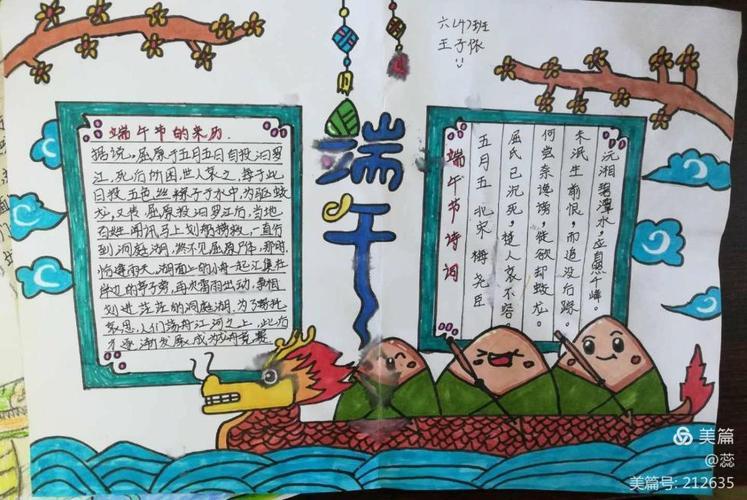 六(4)班
王子怀
端午
端午节的来历.
据说,屈原于五月五日自投汨罗
江,死后为蛟龙所困,世人哀之,每于此
日投五色丝粽子于水中,为驱蛟
龙,又传,屈原投汨罗江后,当地
百姓闻讯马上划船捞救,一直行
到洞庭湖,终不见屈原尸体,那时,
恰逢雨天,湖面上的小舟一起汇集在
岸边的亭子旁,再次冒雨出动,争相
划进茫茫的洞庭湖.为了寄托
哀思,人们荡舟江河之上,此后
才逐渐发展成为龙舟竞赛
端午节诗词
五月五 北宋 梅尧臣
屈氏已沉死,楚人哀不容。
何尝奈谗谤,徒欲却蛟龙。
未泯生前恨,而追没后踪。
沅湘碧潭水,应自照千峰。
美篇
@蕊
美篇号: 212635